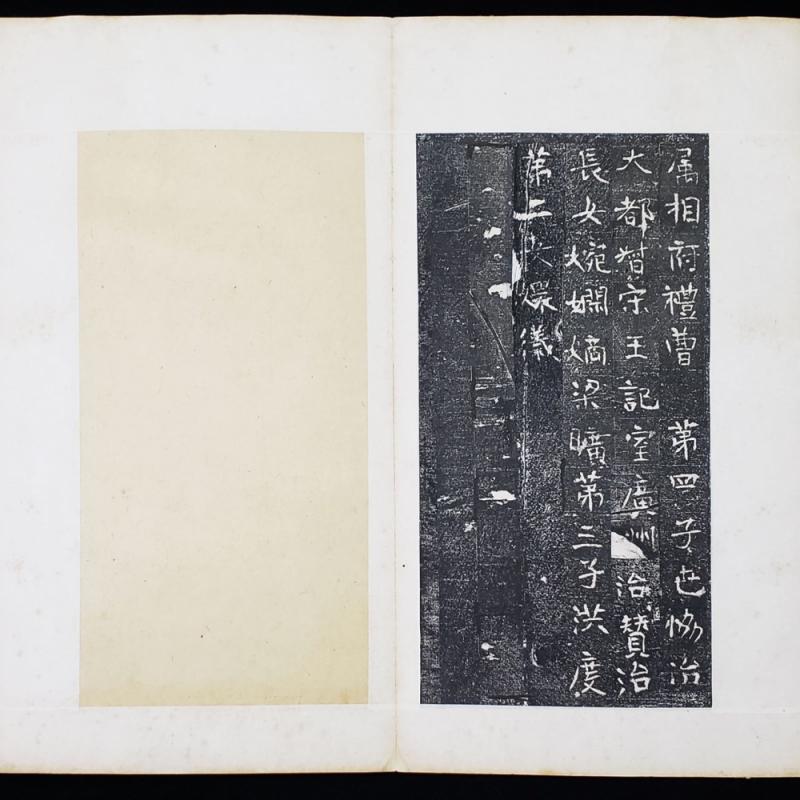 属相府禮曹 第四子世恊治
大都督宗王記室廣州治賛治
長女婉嫻嫡梁曠第三子洪度
第二女還儀